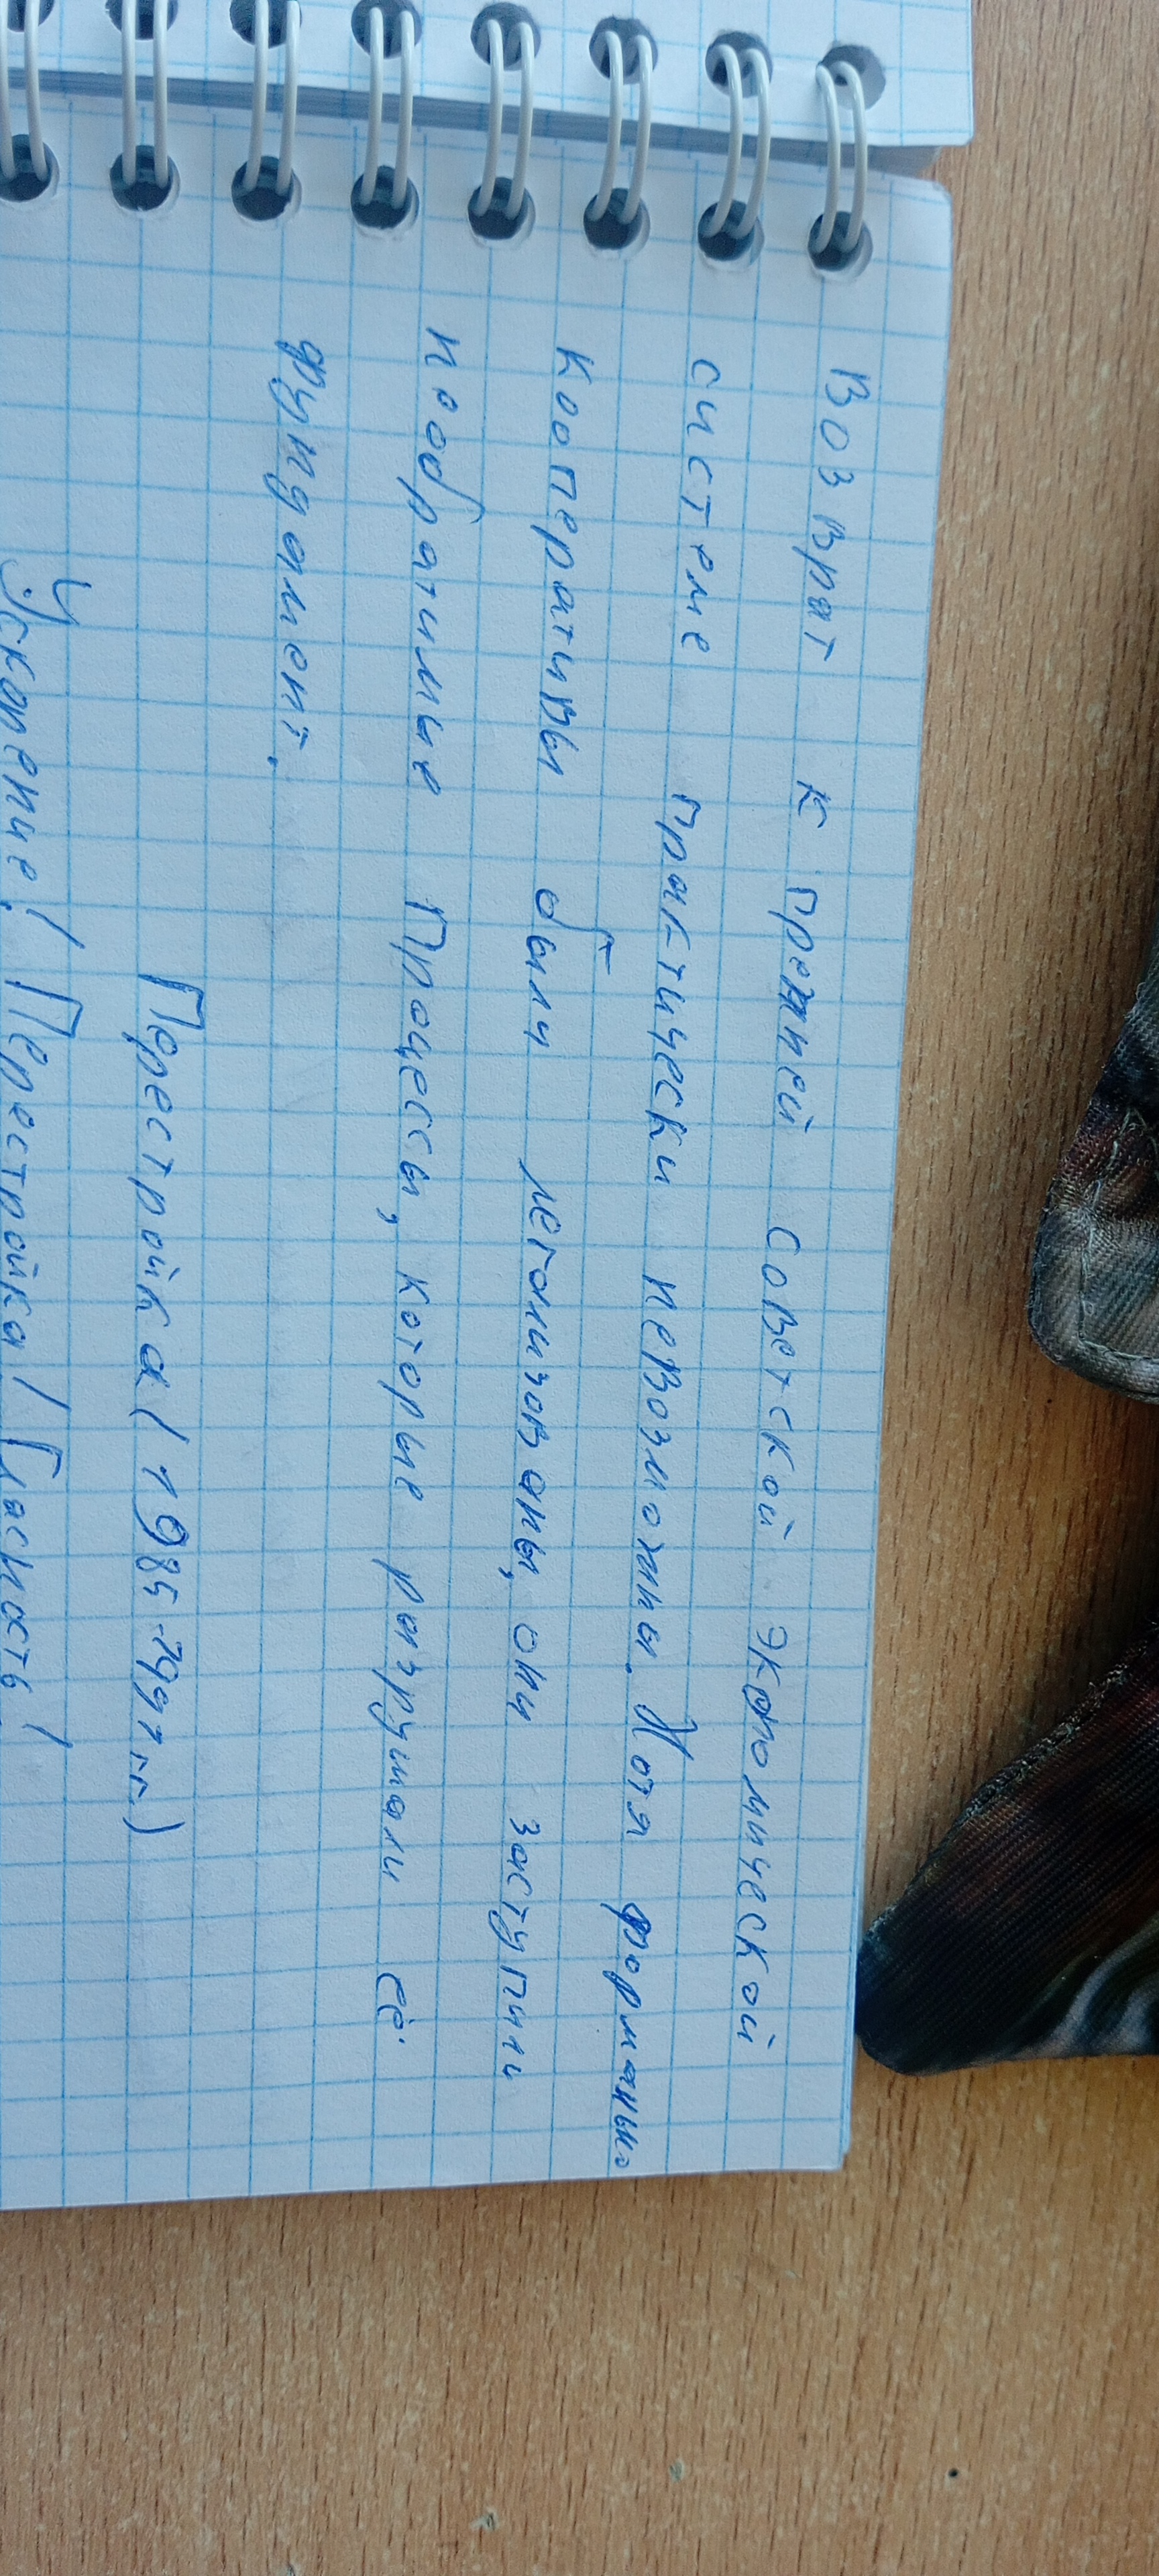 Возврат к прежней советской экономической
системе практически невозможны. Хотя формально
кооперативы были легализованы, они заступили
необратимые процессы, которые разрушали её
фундамент.
Перестройка (1985-1991 гг.)
Ускорение! Перестройка! Гласность!